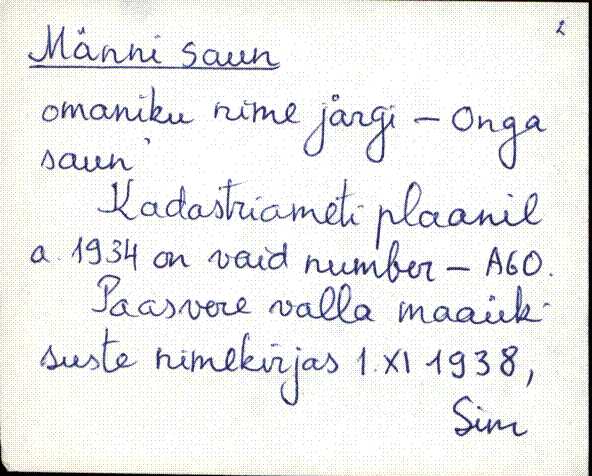 2
Männi saun
omaniku nime järgi – Onga
saun'
Kadastriameti plaanil
a. 1934 on vaid number – A60.
Paasvere valla maaük-
suste nimekirjas 1.XI 1938,
Sim